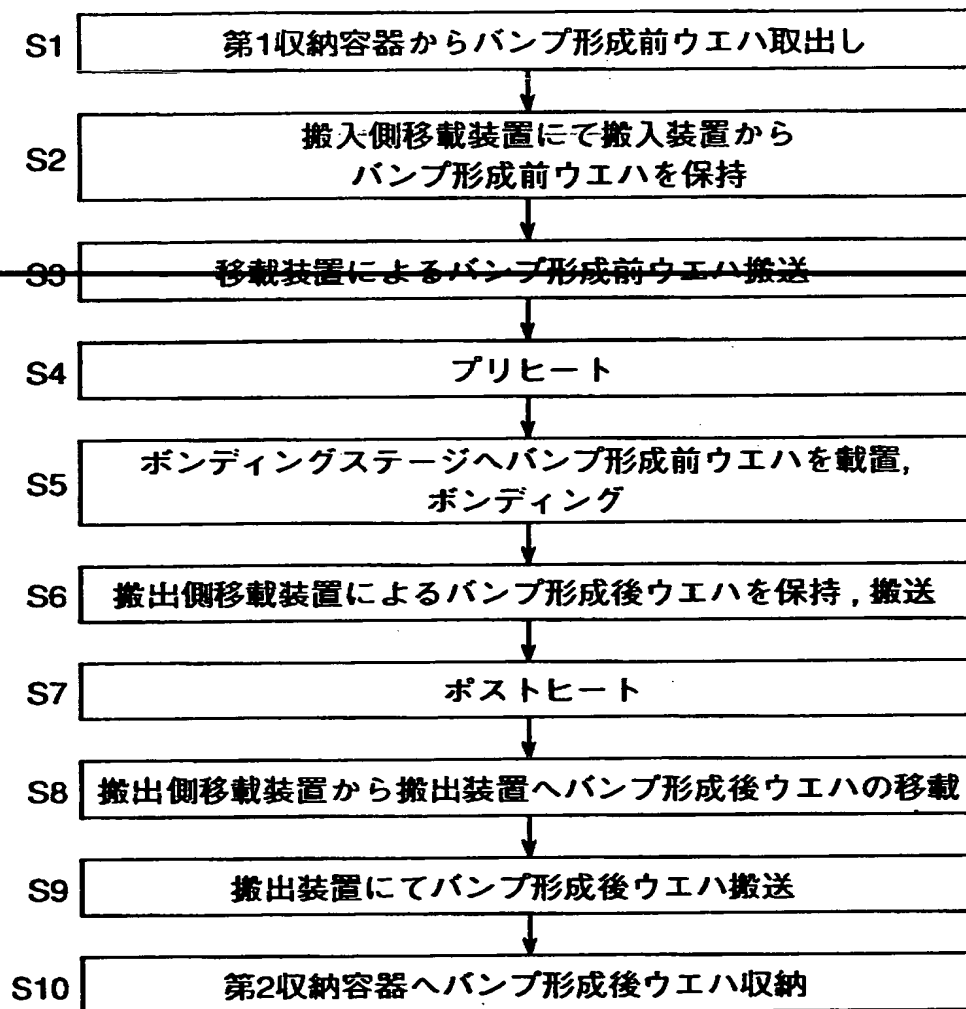 S1 第1収納容器からバンプ形成前ウエハ取出し
S2 搬入側移載装置にて搬入装置から
バンプ形成前ウエハを保持
S3 移載装置によるバンプ形成前ウエハ搬送
S4 プリヒート
S5 ボンディングステージへバンプ形成前ウエハを載置,
ボンディング
S6 搬出側移載装置によるバンプ形成後ウエハを保持,搬送
S7 ポストヒート
S8 搬出側移載装置から搬出装置へバンプ形成後ウエハの移載
S9 搬出装置にてバンプ形成後ウエハ搬送
S10 第2収納容器へバンプ形成後ウエハ収納